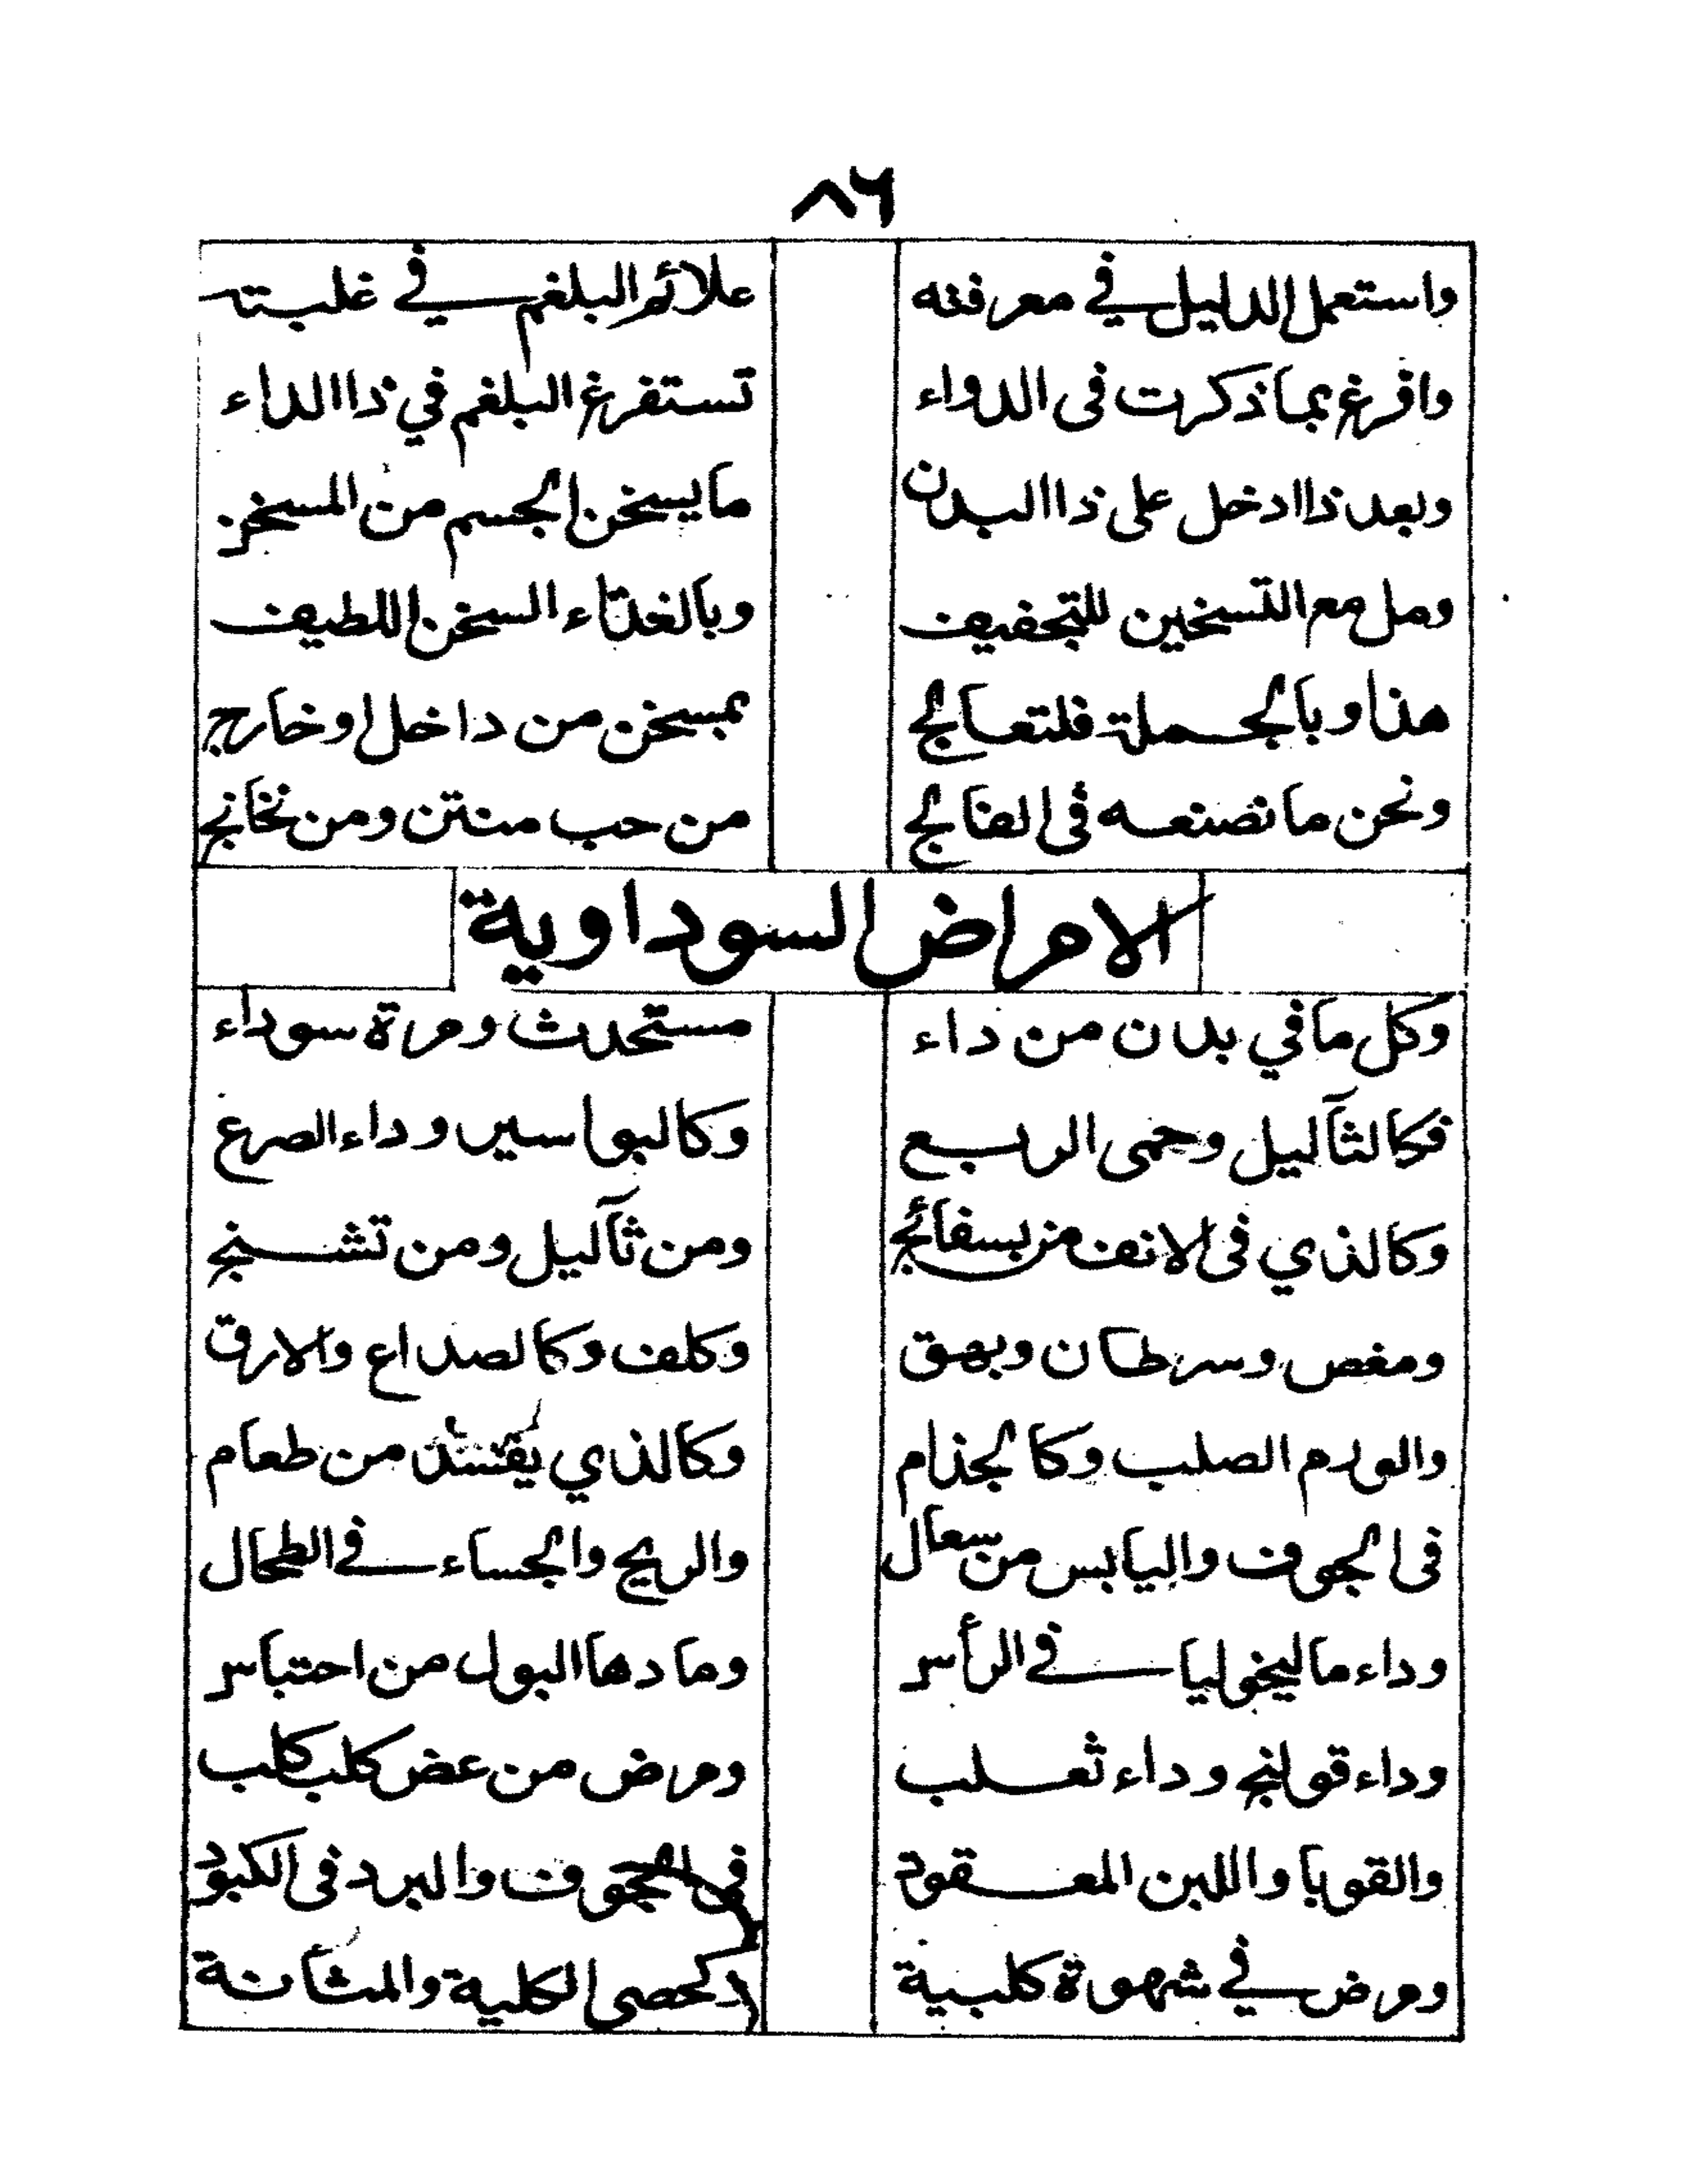 ٨٦
واستعمل الدليل في معرفته علائم البلغم في غلبته
وافرغ بما ذكرت فى الدواء تستفرغ البلغم في ذا الداء
وبعد ذا ادخل على ذا البدن ما يسخن الجسم من المسخن
ومل مع التسخين للتجفيف وبالغذاء السخن اللطيف
هذا وبالجملة فلتعالج بمسخن من داخل او خارج
ونحن ما نصنعه فى الفالج من حب منتن ومن نخانج
الامراض السوداوية
وكل ما في بدن من داء مستحدث ومرة سوداء
فكالثآليل وحمى الربع وكالبواسير وداء الصرع
وكالذي فى الانف من بسفائج ومن ثآليل ومن تشنج
ومغص وسرطان وبهق وكلف وكالصداع والارق
والورم الصلب وكالجذام وكالذي من طعام
فى الجوف واليابس من سعال والريح والجساء في الطحال
وداء ماليخوليا في الرأس وما دها البول من احتباس
وداء قولنج وداء ثعلب ومرض من عض كلب كلب
والقوبا واللبن المعقود فى الجوف والبرد فى الكبود
ومرض في شهوة كلبية كحصى الكلية والمثانة